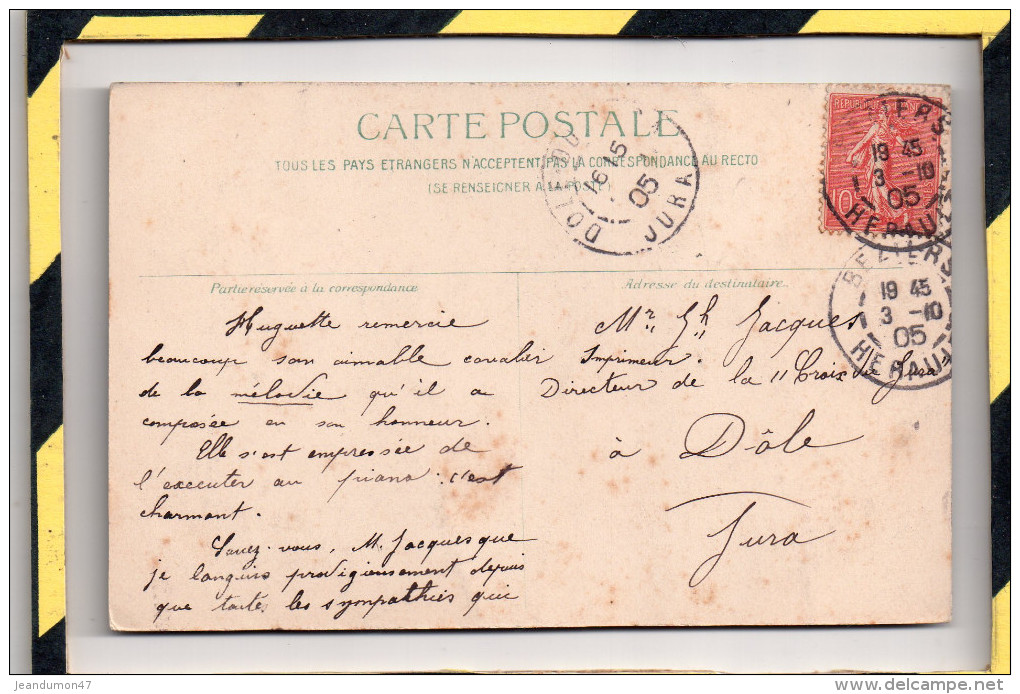 CARTE POSTALE
TOUS LES PAYS ETRANGERS N'ACCEPTENT PAS LA CORRESPONDANCE AU RECTO
(SE RENSEIGNER A LA POSTE)
DOLE-DU-
16 15
05
JURA
REPUBLIQUE FRANÇAISE
10
BEZIERS
19 45
3 -10
05
HERAULT
BEZIERS
19 45
3 -10
05
HERAULT
Partie réservée à la correspondance
Huguette remercie
beaucoup son aimable cavalier
de la mélodie qu'il a
composée en son honneur.
Elle s'est empressée de
l'executer au piano : c'est
charmant.
Savez-vous, M. Jacques que
je languis prodigieusement depuis
que toutes les sympathies qui
Adresse du destinataire.
Mr Ch Jacques
Imprimeur.
Directeur de la "Croix du Jura"
à Dôle
Jura
jeandumon47
www.delcampe.net